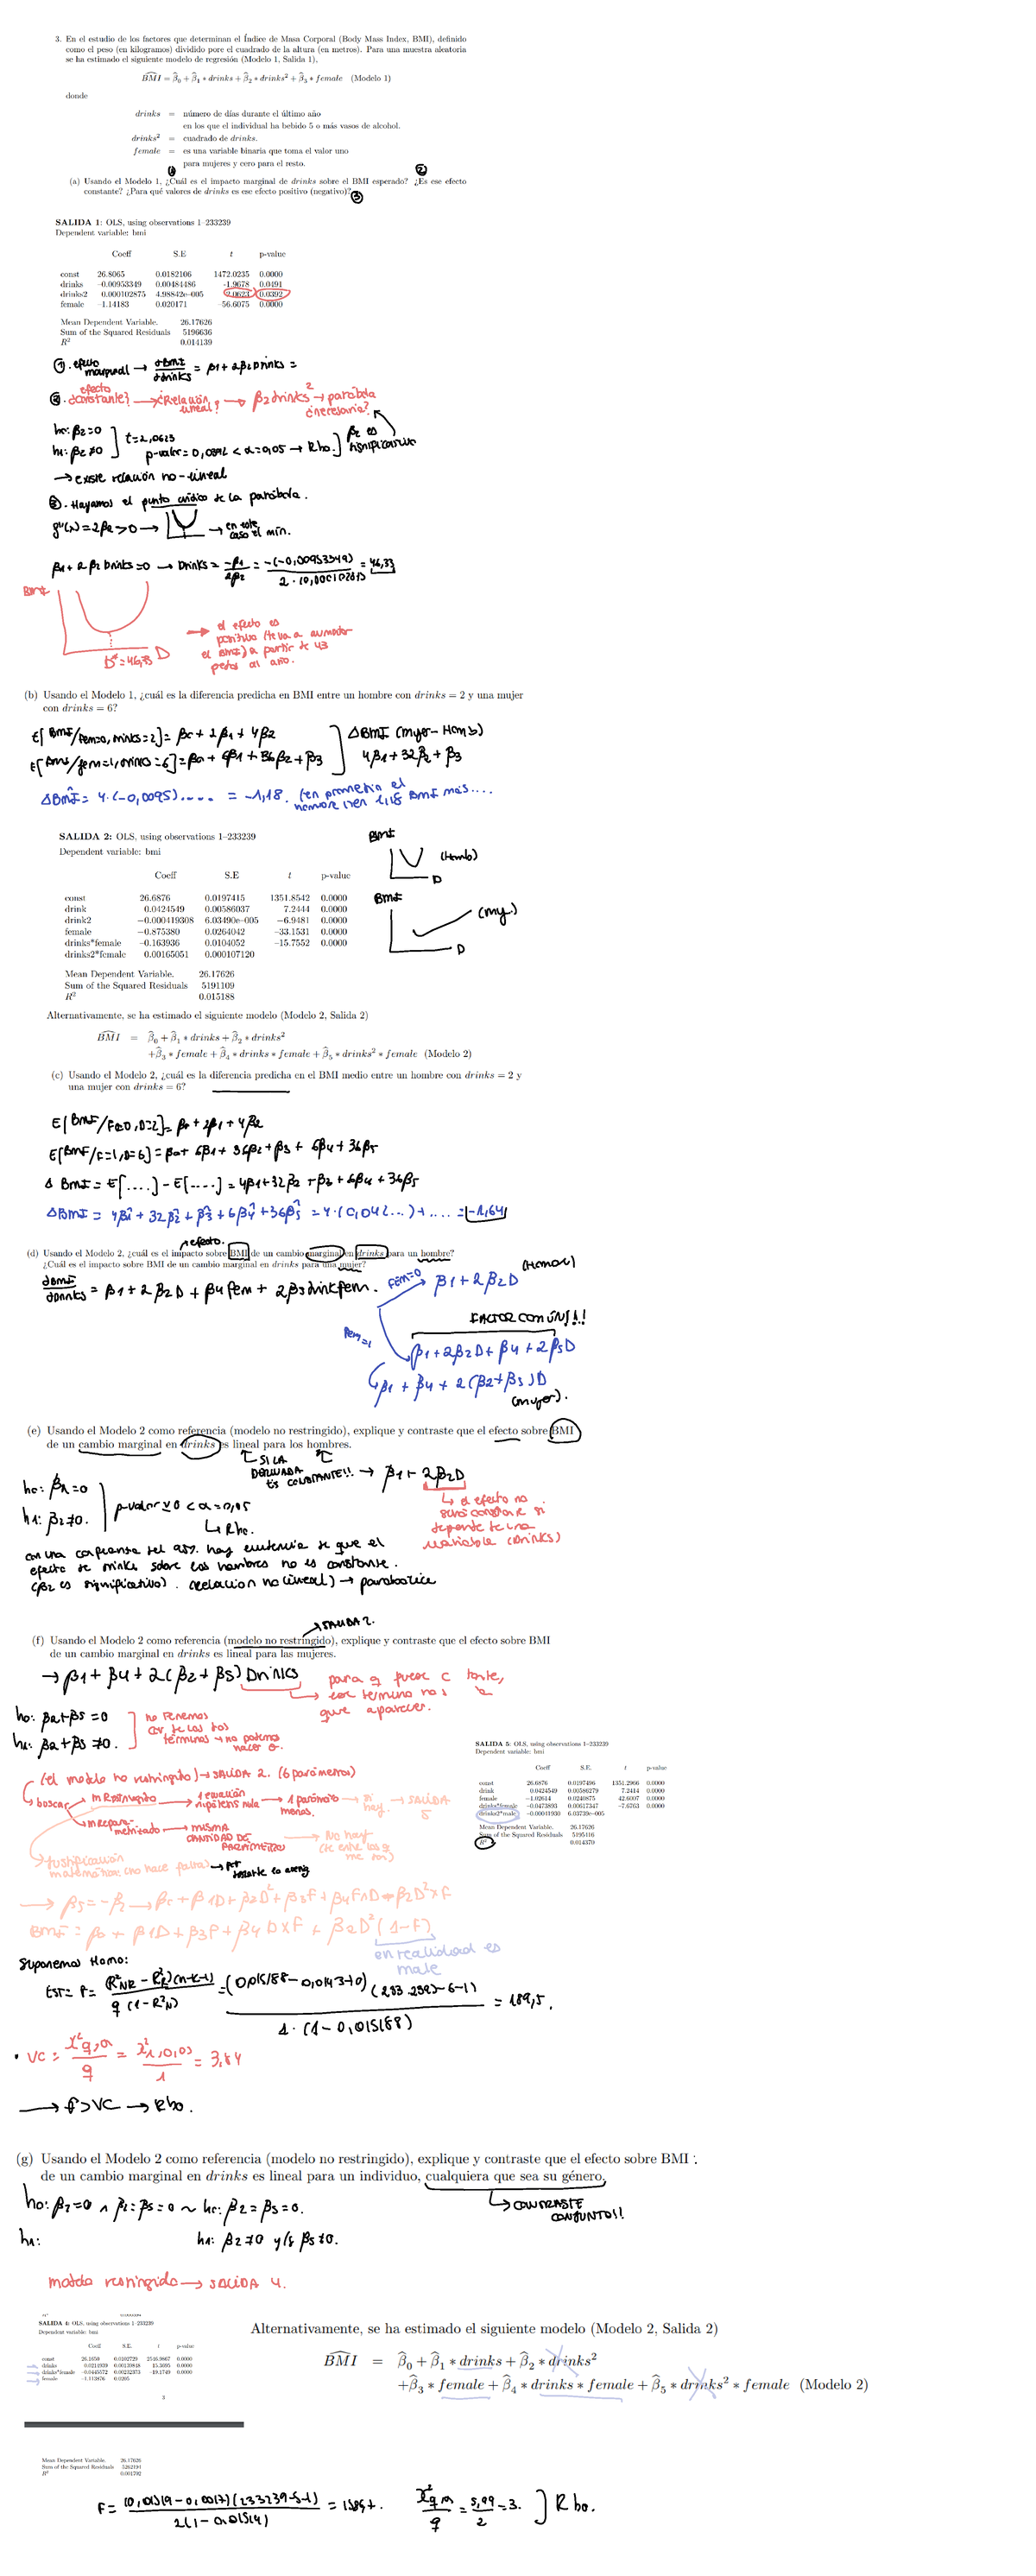 3. En el estudio de los factores que determinan el Índice de Masa Corporal (Body Mass Index, BMI), definido
como el peso (en kilogramos) dividido pore el cuadrado de la altura (en metros). Para una muestra aleatoria
se ha estimado el siguiente modelo de regresión (Modelo 1, Salida 1),
BMI = β̂0 + β̂1 * drinks + β̂2 * drinks² + β̂3 * female (Modelo 1)
donde
drinks = número de días durante el último año
en los que el individual ha bebido 5 o más vasos de alcohol.
drinks² = cuadrado de drinks.
female = es una variable binaria que toma el valor uno
para mujeres y cero para el resto.
(a) Usando el Modelo 1, ¿Cuál es el impacto marginal de drinks sobre el BMI esperado? ¿Es ese efecto
constante? ¿Para qué valores de drinks es ese efecto positivo (negativo)?
SALIDA 1: OLS, using observations 1-233239
Dependent variable: bmi
Coeff S.E t p-value
const 26.8065 0.0182106 1472.0235 0.0000
drinks -0.00953349 0.00484486 -1.9678 0.0491
drinks2 0.000102875 4.98842e-005 2.0623 0.0392
female -1.14183 0.020171 -56.6075 0.0000
Mean Dependent Variable. 26.17626
Sum of the Squared Residuals 5196636
R² 0.014139
①. efecto marginal → dBMI/ddrinks = β1 + 2β2 Drinks =
②. efecto ¿constante? → ¿Relación lineal? → β2 drinks² → parábola
¿necesaria?
h0: β2=0
h1: β2≠0 ] t=2,0623
p-valor = 0,0392 < α=0,05 → Rho. ] β2 es significativo
→ existe relación no-lineal
③. Hayamos el punto crítico de la parábola.
g''(x) = 2β2 > 0 → en este caso el mín.
β1 + 2β2 Drinks = 0 → Drinks = -β1/2β2 = -(-0,00953349)/2·(0,000102875) = 46,33
BMI
D* = 46,33 D
→ el efecto es
positivo (te va a aumentar
el BMI) a partir de 43
pedos al año.
(b) Usando el Modelo 1, ¿cuál es la diferencia predicha en BMI entre un hombre con drinks = 2 y una mujer
con drinks = 6?
E[BMI/fem=0, drinks=2] = β0 + 2β1 + 4β2
E[BMI/fem=1, drinks=6] = β0 + 6β1 + 36β2 + β3
ΔBMI (mujer-Homb)
4β1 + 32β2 + β3
ΔBMI = 4·(-0,0095).... = -1,18. (en promedio el
hombre tien 1,18 BMI más....
SALIDA 2: OLS, using observations 1-233239
Dependent variable: bmi
Coeff S.E t p-value
const 26.6876 0.0197415 1351.8542 0.0000
drink 0.0424549 0.00586037 7.2444 0.0000
drink2 -0.000419308 6.03490e-005 -6.9481 0.0000
female -0.875380 0.0264042 -33.1531 0.0000
drinks*female -0.163936 0.0104052 -15.7552 0.0000
drinks2*female 0.00165051 0.000107120
Mean Dependent Variable. 26.17626
Sum of the Squared Residuals 5191109
R² 0.015188
BMI
(Homb)
D
BMI
(muj.)
D
Alternativamente, se ha estimado el siguiente modelo (Modelo 2, Salida 2)
BMI = β̂0 + β̂1 * drinks + β̂2 * drinks²
+β̂3 * female + β̂4 * drinks * female + β̂5 * drinks² * female (Modelo 2)
(c) Usando el Modelo 2, ¿cuál es la diferencia predicha en el BMI medio entre un hombre con drinks = 2 y
una mujer con drinks = 6?
E[BMI/F=0, D=2] = β0 + 2β1 + 4β2
E[BMI/F=1, D=6] = β0 + 6β1 + 36β2 + β3 + 6β4 + 36β5
Δ BMI = E[....] - E[.....] = 4β1 + 32β2 + β3 + 6β4 + 36β5
ΔBMI = 4β̂1 + 32β̂2 + β̂3 + 6β̂4 + 36β̂5 = 4·(0,042...) + .... = -1,64
efecto.
(d) Usando el Modelo 2, ¿cuál es el impacto sobre BMI de un cambio marginal en drinks para un hombre?
¿Cuál es el impacto sobre BMI de un cambio marginal en drinks para una mujer?
dBMI/ddrinks = β1 + 2β2D + β4 fem + 2β5 drink fem.
fem=0 β1 + 2β2D (Hombre)
FACTOR COMÚN!!!
fem=1 β1 + 2β2D + β4 + 2β5D
β1 + β4 + 2(β2+β5)D
(mujer).
(e) Usando el Modelo 2 como referencia (modelo no restringido), explique y contraste que el efecto sobre BMI
de un cambio marginal en drinks es lineal para los hombres.
SI LA
DERIVADA
ES CONSTANTE!! → β1 + 2β2D
h0: β2=0
h1: β2≠0. p-valor ≈ 0 < α=0,05
↳ Rho.
↳ el efecto no
será constante si
depende de una
variable (Drinks)
con una confianza del 95%. hay evidencia de que el
efecto de drinks sobre los hombres no es constante.
(β2 es significativo). (relacion no lineal) → parabólica
SALIDA 2.
(f) Usando el Modelo 2 como referencia (modelo no restringido), explique y contraste que el efecto sobre BMI
de un cambio marginal en drinks es lineal para las mujeres.
→ β1 + β4 + 2(β2 + β5) Drinks
h0: β2+β5 = 0
h1: β2+β5 ≠0.
no tenemos
términos → no podemos
hacer
SALIDA 5: OLS, using observations 1-233239
Dependent variable: bmi
Coeff S.E. t p-value
const 26.6876 0.0197496 1351.2966 0.0000
drink 0.0424549 0.00586279 7.2414 0.0000
female -1.02614 0.0240875 42.6007 0.0000
drinks*female -0.0473893 0.00617347 -7.6763 0.0000
drinks2*male -0.00041930 6.03739e-005
Mean Dependent Variable. 26.17626
Sum of the Squared Residuals 5195116
R² 0.014379
(el modelo no restringido) → SALIDA 2. (6 parámetros)
buscar → m Restringido → 1 ecuación hipótesis nula → 1 parámetro menos. → si hay. → SALIDA 5
→ m Reparametrizado → MISMA CANTIDAD DE PARÁMETROS → No hay
Justificación
matemática (no hace falta)
→ β5 = -β2 → β0 + β1D + β2D² + β3F + β4F·D - β2D²×F
BMI = β0 + β1D + β3F + β4D×F + β2D²(1-F)
en realidad es
male
Suponemos Homo:
Est = F = (R²NR - R²R)(n-k-1)/q(1-R²N) = (0,015188 - 0,014370)(233.239-6-1)/1·(1-0,015188) = 189,5.
· VC = χ²q,α/q = χ²1,0,05/1 = 3,84
→ F>VC → Rho.
(g) Usando el Modelo 2 como referencia (modelo no restringido), explique y contraste que el efecto sobre BMI
de un cambio marginal en drinks es lineal para un individuo, cualquiera que sea su género.
↳ CONTRASTE
CONJUNTO!!
h0: β2=0 ∧ β2+β5=0 ~ h0: β2=β5=0.
h1: h1: β2≠0 y/o β5≠0.
modelo restringido → SALIDA 4.
SALIDA 4: OLS, using observations 1-233239
Dependent variable: bmi
Coeff S.E. t p-value
Alternativamente, se ha estimado el siguiente modelo (Modelo 2, Salida 2)
BMI = β̂0 + β̂1 * drinks + β̂2 * drinks²
+β̂3 * female + β̂4 * drinks * female + β̂5 * drinks² * female (Modelo 2)
3
Mean Dependent Variable. 26.17626
Sum of the Squared Residuals
R²
χ²q,α/q = 5,99/2 = 3. ] Rho.